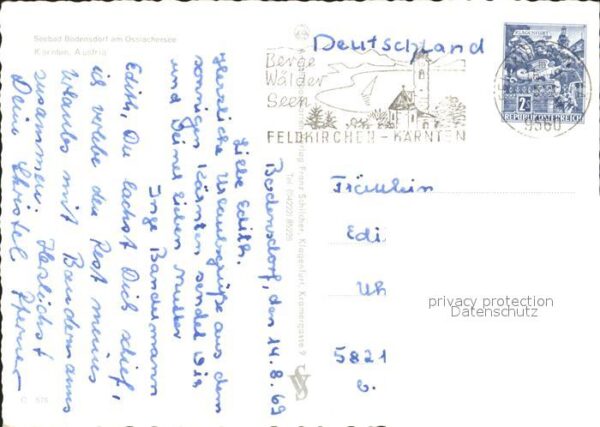 Seebad Bodensdorf am Ossiachersee
Kärnten, Austria
Bodensdorf, den 14.8.69
Liebe Edith.
Herzliche Urlaubsgrüße aus dem
sonnigen Kärnten sendet Dir
und Deiner lieben Mutter
Inge Bandemann
Edith, Du lachst Dich schief,
ich verlebe den Rest meines
Urlaubs mit Bandemanns
zusammen. Herzlichst
Deine Christel
C 575
Franz Schilcher, Klagenfurt, Kramergasse 9
Tel. (04222) 85225
Deutschland
Berge
Wälder
Seen
FELDKIRCHEN - KÄRNTEN
KLAGENFURT
2S
REPUBLIK ÖSTERREICH
9560
Fräulein
Edi
Uh
5821
privacy protection
Datenschutz